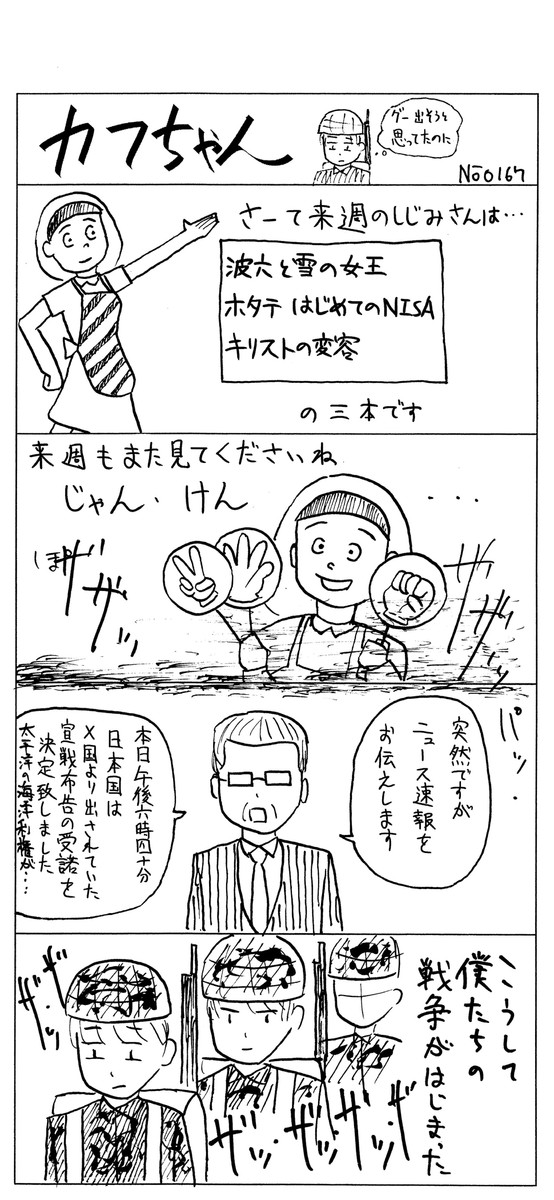 カフちゃん
グー出そうと
思ってたのに
No0167
さーて来週のしじみさんは…
波穴と雪の女王
ホタテ はじめてのNISA
キリストの変容
の三本です
来週もまた見てくださいね
じゃん・けん
・・・
ザザッ
ザザッ
パッ・・
突然ですが
ニュース速報を
お伝えします
本日午後六時四十分
日本国は
X国より出されていた
宣戦布告の受諾を
決定致しました
太平洋の海洋利権が…
こうして
僕たちの
戦争がはじまった
ザッ・ザッ
ザッ・ザッ・ザッ・ザッ